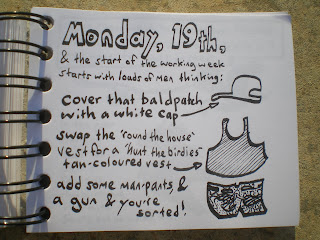 Monday, 19th,
& the start of the working week
starts with loads of men thinking:
cover that baldpatch
with a white cap
swap the 'round the house'
vest for a "hunt the birdies"
tan-coloured vest
add some man-pants, &
a gun & you're
sorted!